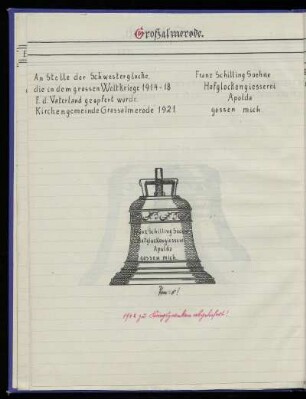 Großalmerode.
An Stelle der Schwesterglocke,
die in dem grossen Weltkriege 1914-18
f. d. Vaterland geopfert wurde.
Kirchengemeinde Grossalmerode 1921.
Franz Schilling Soehne
Hofglockengiesserei
Apolda
gossen mich.
Franz Schilling Soehne
Hofglockengiesserei
Apolda
gossen mich.
zu abgeliefert!